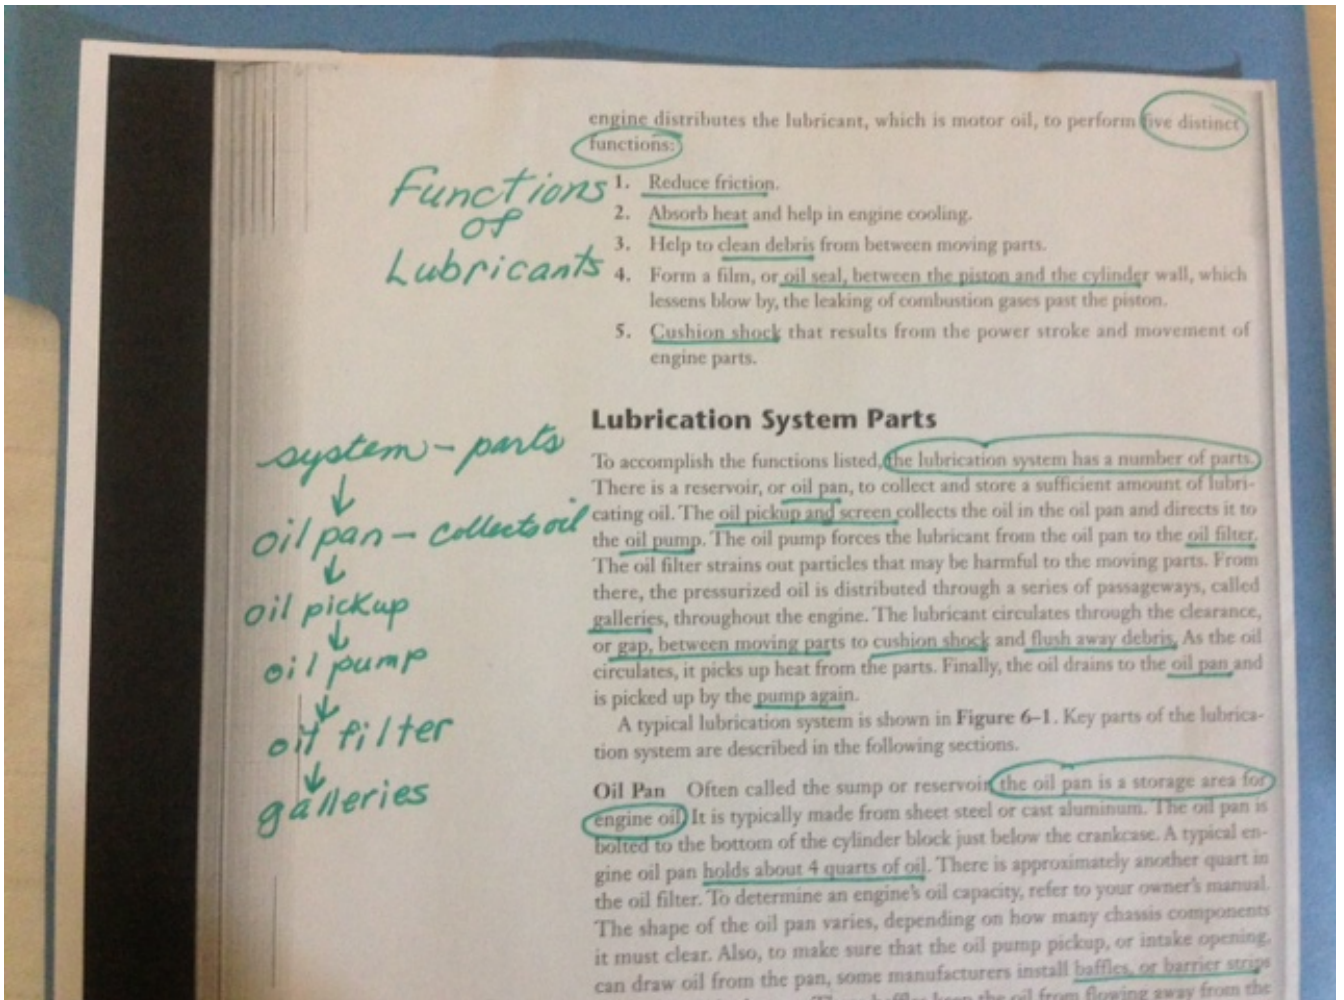 engine distributes the lubricant, which is motor oil, to perform five distinct
functions:
Functions
of
Lubricants
1. Reduce friction.
2. Absorb heat and help in engine cooling.
3. Help to clean debris from between moving parts.
4. Form a film, or oil seal, between the piston and the cylinder wall, which
lessens blow by, the leaking of combustion gases past the piston.
5. Cushion shock that results from the power stroke and movement of
engine parts.
Lubrication System Parts
system - parts
↓
oil pan - collects oil
↓
oil pickup
↓
oil pump
↓
oil filter
↓
galleries
To accomplish the functions listed, the lubrication system has a number of parts.
There is a reservoir, or oil pan, to collect and store a sufficient amount of lubri-
cating oil. The oil pickup and screen collects the oil in the oil pan and directs it to
the oil pump. The oil pump forces the lubricant from the oil pan to the oil filter.
The oil filter strains out particles that may be harmful to the moving parts. From
there, the pressurized oil is distributed through a series of passageways, called
galleries, throughout the engine. The lubricant circulates through the clearance,
or gap, between moving parts to cushion shock and flush away debris. As the oil
circulates, it picks up heat from the parts. Finally, the oil drains to the oil pan and
is picked up by the pump again.
A typical lubrication system is shown in Figure 6–1. Key parts of the lubrica-
tion system are described in the following sections.
Oil Pan Often called the sump or reservoir, the oil pan is a storage area for
engine oil. It is typically made from sheet steel or cast aluminum. The oil pan is
bolted to the bottom of the cylinder block just below the crankcase. A typical en-
gine oil pan holds about 4 quarts of oil. There is approximately another quart in
the oil filter. To determine an engine's oil capacity, refer to your owner's manual.
The shape of the oil pan varies, depending on how many chassis components
it must clear. Also, to make sure that the oil pump pickup, or intake opening,
can draw oil from the pan, some manufacturers install baffles, or barrier strips
baffles keep the oil from flowing away from the